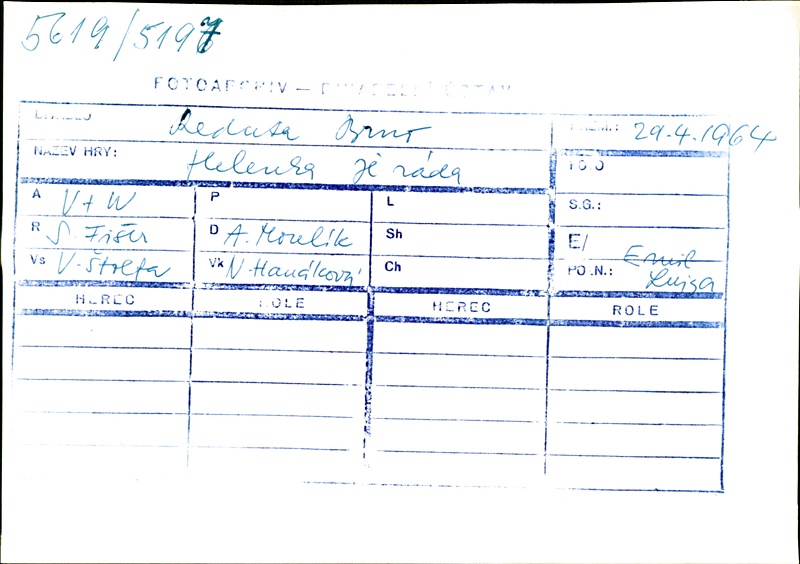 5619/5197
FOTOARCHIV — DIVADELNÍ ÚSTAV
DIVADLO Reduta Brno PREM.: 29.4.1964
NÁZEV HRY: Helenka je ráda FOTO
A V+W P L S.G.:
R S. Fišer D A. Moulík Sh E/ Emil
Vs V. Štolfa Vk N. Hanáková Ch POZN.: Lujza
HEREC ROLE HEREC ROLE